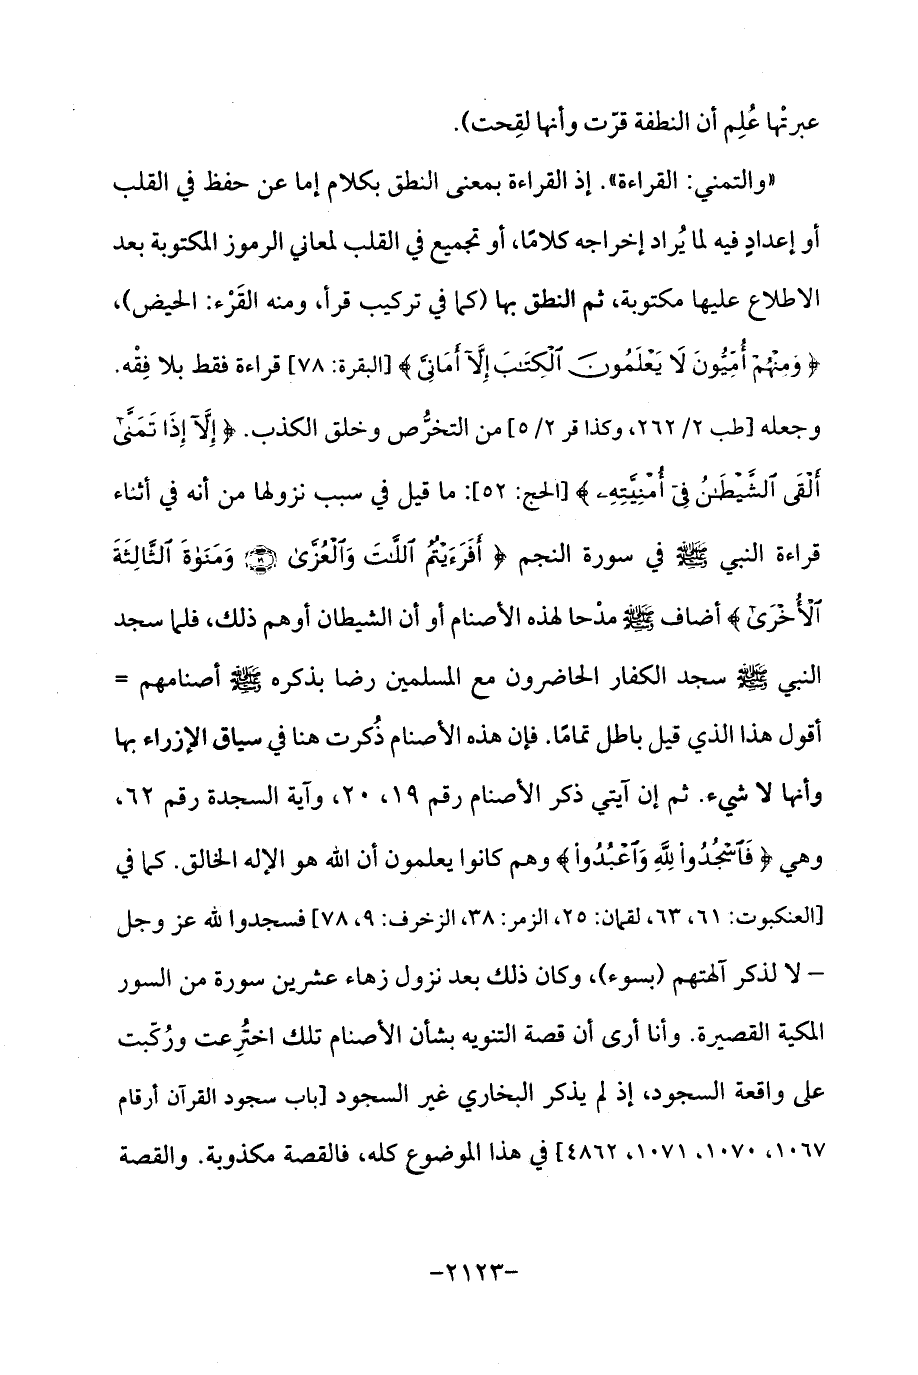 عبرتْها عُلِم أن النطفة قرّت وأنها لقِحت).
«والتمني: القراءة». إذ القراءة بمعنى النطق بكلام إما عن حفظ في القلب
أو إعدادٍ فيه لما يُراد إخراجه كلامًا، أو تجميع في القلب لمعاني الرموز المكتوبة بعد
الاطلاع عليها مكتوبة، ثم النطق بها (كما في تركيب قرأ، ومنه القَرْء: الحيض)،
﴿ وَمِنْهُمْ أُمِّيُّونَ لَا يَعْلَمُونَ ٱلْكِتَٰبَ إِلَّآ أَمَانِىَّ ﴾ [البقرة: ٧٨] قراءة فقط بلا فِقْه.
وجعله [طب ٢/ ٢٦٢، وكذا قر ٢/ ٥] من التخرُّص وخلق الكذب. ﴿ إِلَّآ إِذَا تَمَنَّىٰٓ
أَلْقَى ٱلشَّيْطَٰنُ فِىٓ أُمْنِيَّتِهِۦ ﴾ [الحج: ٥٢]: ما قيل في سبب نزولها من أنه في أثناء
قراءة النبي ﷺ في سورة النجم ﴿ أَفَرَءَيْتُمُ ٱللَّٰتَ وَٱلْعُزَّىٰ ۝ وَمَنَوٰةَ ٱلثَّالِثَةَ
ٱلْأُخْرَىٰٓ ﴾ أضاف ﷺ مدْحا لهذه الأصنام أو أن الشيطان أوهم ذلك، فلما سجد
النبي ﷺ سجد الكفار الحاضرون مع المسلمين رضا بذكره ﷺ أصنامهم =
أقول هذا الذي قيل باطل تمامًا. فإن هذه الأصنام ذُكرت هنا في سياق الإزراء بها
وأنها لا شيء. ثم إن آيتي ذكر الأصنام رقم ١٩، ٢٠، وآية السجدة رقم ٦٢،
وهي ﴿ فَٱسْجُدُوا۟ لِلَّهِ وَٱعْبُدُوا۟ ﴾ وهم كانوا يعلمون أن الله هو الإله الخالق. كما في
[العنكبوت: ٦١، ٦٣، لقمان: ٢٥، الزمر: ٣٨، الزخرف: ٩، ٧٨] فسجدوا لله عز وجل
– لا لذكر آلهتهم (بسوء)، وكان ذلك بعد نزول زهاء عشرين سورة من السور
المكية القصيرة. وأنا أرى أن قصة التنويه بشأن الأصنام تلك اختُرِعت ورُكّبت
على واقعة السجود، إذ لم يذكر البخاري غير السجود [باب سجود القرآن أرقام
١٠٦٧، ١٠٧٠، ١٠٧١، ٤٨٦٢] في هذا الموضوع كله، فالقصة مكذوبة. والقصة
–٢١٢٣–